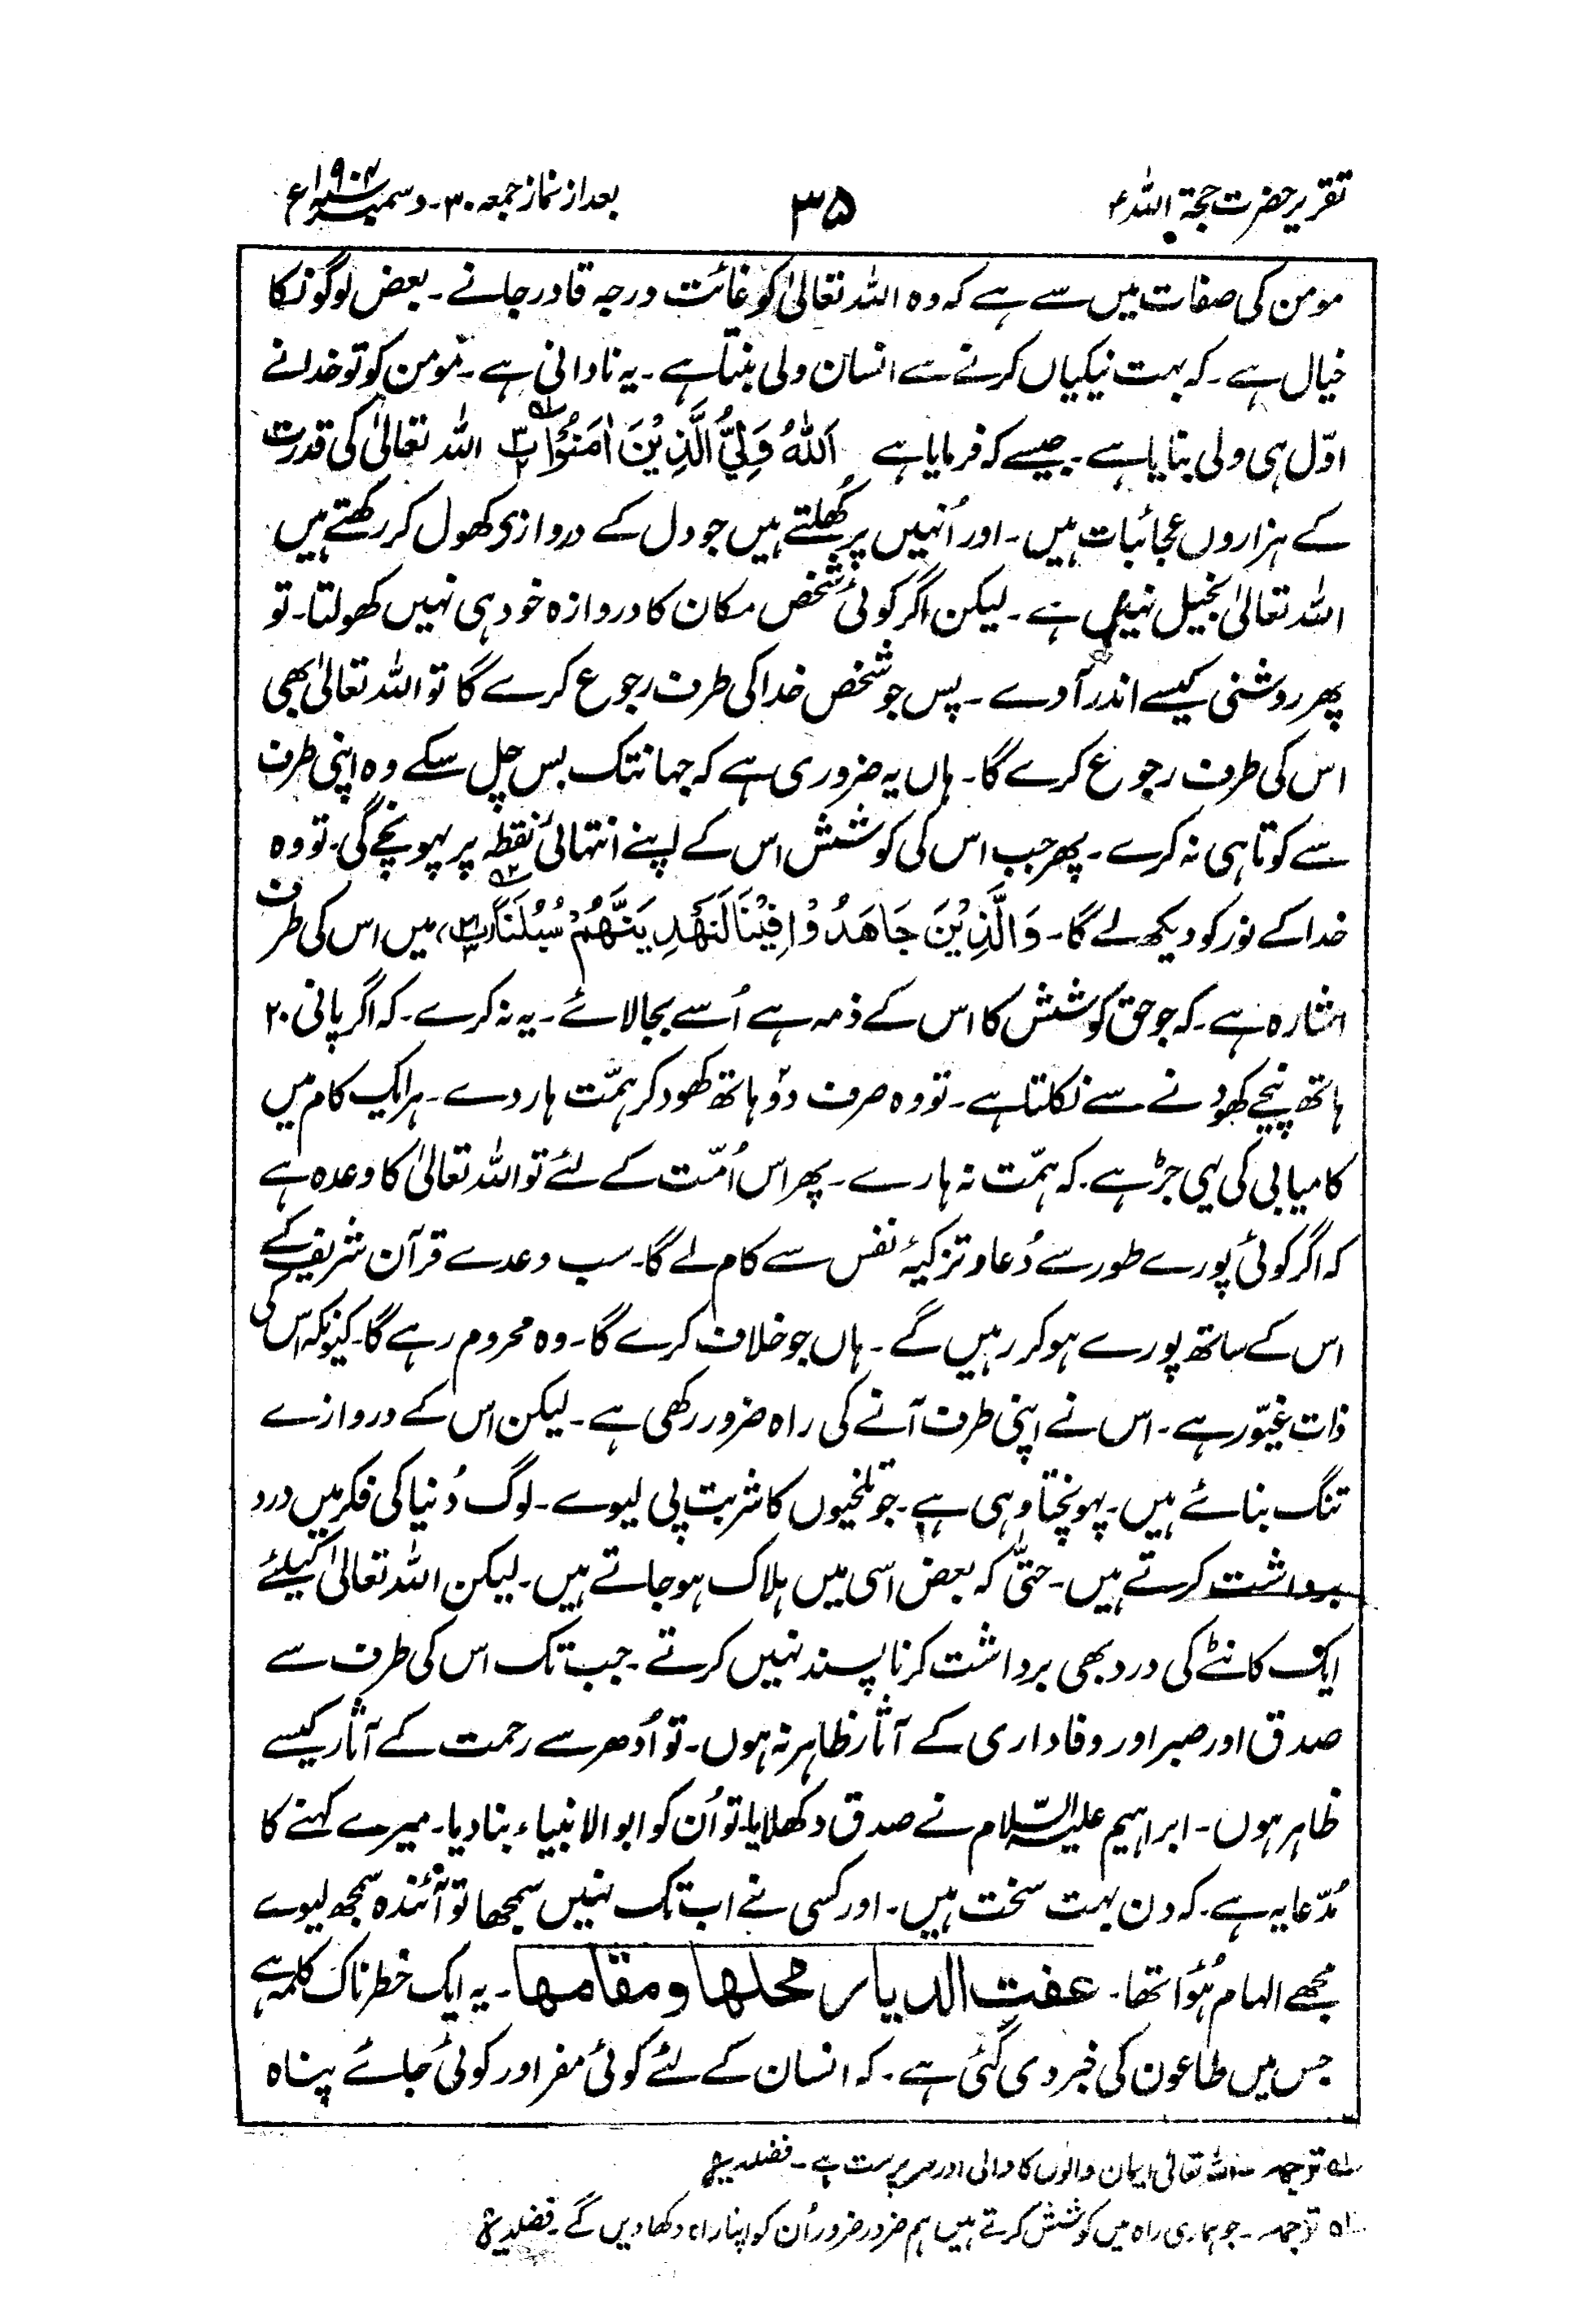 تقریر حضرت حجۃ اللہؑ
۳۵
بعد از نماز جمعہ ۳۰۔ دسمبر ۱۹۰۴ء
مومن کی صفات میں سے ہے کہ وہ اللہ تعالیٰ کو غائت درجہ قادر جانے ۔ بعض لوگونکا
خیال ہے ۔ کہ بہت نیکیاں کرنے سے انسان ولی بنتا ہے ۔ یہ نادانی ہے ۔ مومن کو تو خدا نے
اوّل ہی ولی بنایا ہے ۔ جیسے کہ فرمایا ہے اَللّٰہُ وَلِیُّ الَّذِیْنَ اٰمَنُوْا اللہ تعالیٰ کی قدرت
کے ہزاروں عجائبات ہیں ۔ اور اُنہیں پر کُھلتے ہیں جو دل کے دروازی کھول کر رکھتے ہیں
اللہ تعالیٰ بخیل نہیں ہے ۔ لیکن اگر کوئی شخص مکان کا دروازہ خود ہی نہیں کھولتا ۔ تو
پھر روشنی کیسے اندر آوے ۔ پس جو شخص خدا کی طرف رجوع کرے گا تو اللہ تعالیٰ بھی
اس کی طرف رجوع کرے گا ۔ ہاں یہ ضروری ہے کہ جہانتک بس چل سکے وہ اپنی طرف
سے کوتاہی نہ کرے ۔ پھر جب اس کی کوشش اس کے اپنے انتہائی نقطہ پر پہونچے گی ۔ تو وہ
خدا کے نور کو دیکھ لے گا ۔ وَالَّذِیْنَ جَاھَدُوْا فِیْنَا لَنَھْدِیَنَّھُمْ سُبُلَنَا ، میں اس کی طرف
اشارہ ہے ۔ کہ جو حق کوشش کا اس کے ذمہ ہے اُسے بجا لائے ۔ یہ نہ کرے ۔ کہ اگر پانی ۲۰
ہاتھ نیچے کھودنے سے نکلتا ہے ۔ تو وہ صرف دوؔ ہاتھ کھود کر ہمّت ہار دے ۔ ہر ایک کام میں
کامیابی کی یہی جڑ ہے ۔ کہ ہمّت نہ ہارے ۔ پھر اس اُمّت کے لئے تو اللہ تعالیٰ کا وعدہ ہے
کہ اگر کوئی پورے طور سے دُعا و تزکیۂ نفس سے کام لے گا ۔ سب وعدے قرآن شریف کے
اس کے ساتھ پورے ہو کر رہیں گے ۔ ہاں جو خلاف کرے گا ۔ وہ محروم رہے گا ۔ کیونکہ اس کی
ذات غیّور ہے ۔ اس نے اپنی طرف آنے کی راہ ضرور رکھی ہے ۔ لیکن اس کے دروازے
تنگ بنائے ہیں ۔ پہونچتا وہی ہے ۔ جو تلخیوں کا شربت پی لیوے ۔ لوگ دُنیا کی فکر میں درد
برداشت کرتے ہیں ۔ حتّٰی کہ بعض اسی میں ہلاک ہو جاتے ہیں ۔ لیکن اللہ تعالیٰ کیلئے
ایک کانٹے کی درد بھی برداشت کرنا پسند نہیں کرتے ۔ جب تک اس کی طرف سے
صدق اور صبر اور وفاداری کے آثار ظاہر نہ ہوں ۔ تو اُدھر سے رحمت کے آثار کیسے
ظاہر ہوں ۔ ابراہیم علیہ السّلام نے صدق دکھلایا ۔ تو اُن کو ابو الانبیاء بنا دیا ۔ میرے کہنے کا
مُدّعا یہ ہے ۔ کہ دن بہت سخت ہیں ۔ اور کسی نے اب تک نہیں سمجھا تو آئندہ سمجھ لیوے
مجھے الہام ہُوا تھا ۔ عفت الدیار محلها ومقامها ۔ یہ ایک خطرناک کلمہ ہے
جس میں طاعون کی خبر دی گئی ہے ۔ کہ انسان کے لئے کوئی مفر اور کوئی جائے پناہ
۱؎ ترجمہ ۔ اللہ تعالیٰ ایمان والوں کا والی اور سرپرست ہے ۔
۲؎ ترجمہ ۔ جو ہماری راہ میں کوشش کرتے ہیں ہم ضرور ضرور اُن کو اپنا راہ دکھا دیں گے ۔